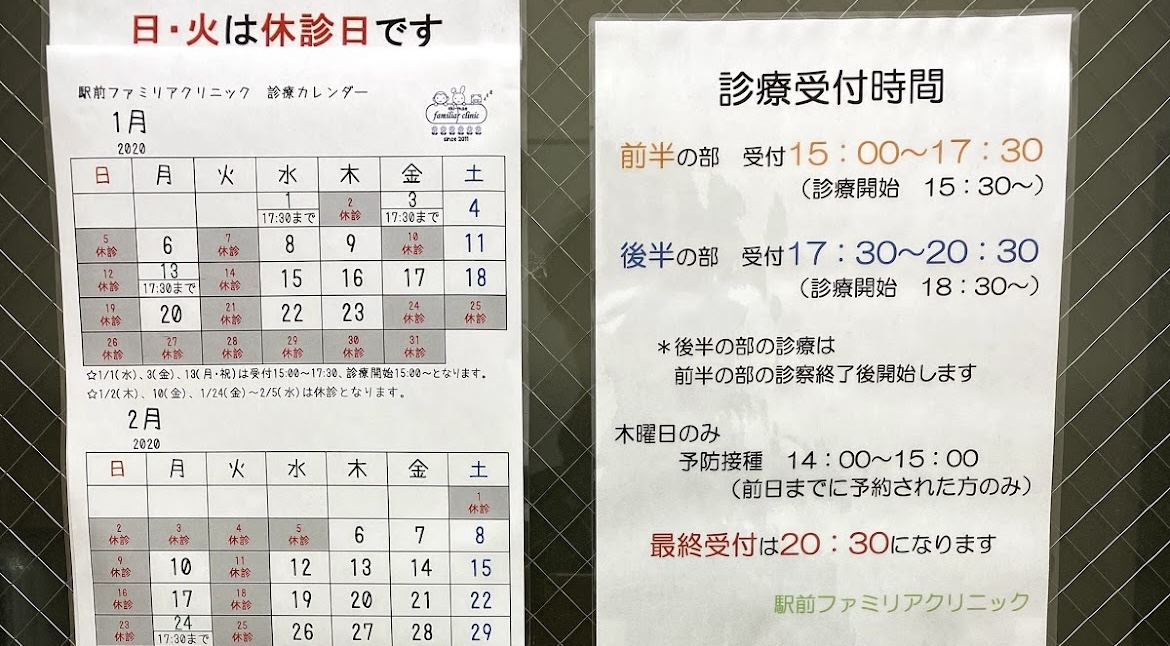 日・火は休診日です
駅前ファミリアクリニック 診療カレンダー
familiar clinic
since 2011
1月
2020
日 月 火 水 木 金 土
1 2 3 4
17:30まで 休診 17:30まで
5 6 7 8 9 10 11
休診 休診 休診
12 13 14 15 16 17 18
休診 17:30まで 休診
19 20 21 22 23 24 25
休診 休診 休診 休診
26 27 28 29 30 31
休診 休診 休診 休診 休診 休診
☆1/1(水)、3(金)、13(月・祝)は受付15:00~17:30、診療開始15:00~となります。
☆1/2(木)、10(金)、1/24(金)~2/5(水)は休診となります。
2月
2020
日 月 火 水 木 金 土
1
休診
2 3 4 5 6 7 8
休診 休診 休診 休診
9 10 11 12 13 14 15
休診 休診
16 17 18 19 20 21 22
休診 休診
23 24 25 26 27 28 29
休診 17:30まで 休診
診療受付時間
前半の部 受付15:00~17:30
(診療開始 15:30~)
後半の部 受付17:30~20:30
(診療開始 18:30~)
*後半の部の診療は
前半の部の診察終了後開始します
木曜日のみ
予防接種 14:00~15:00
(前日までに予約された方のみ)
最終受付は20:30になります
駅前ファミリアクリニック